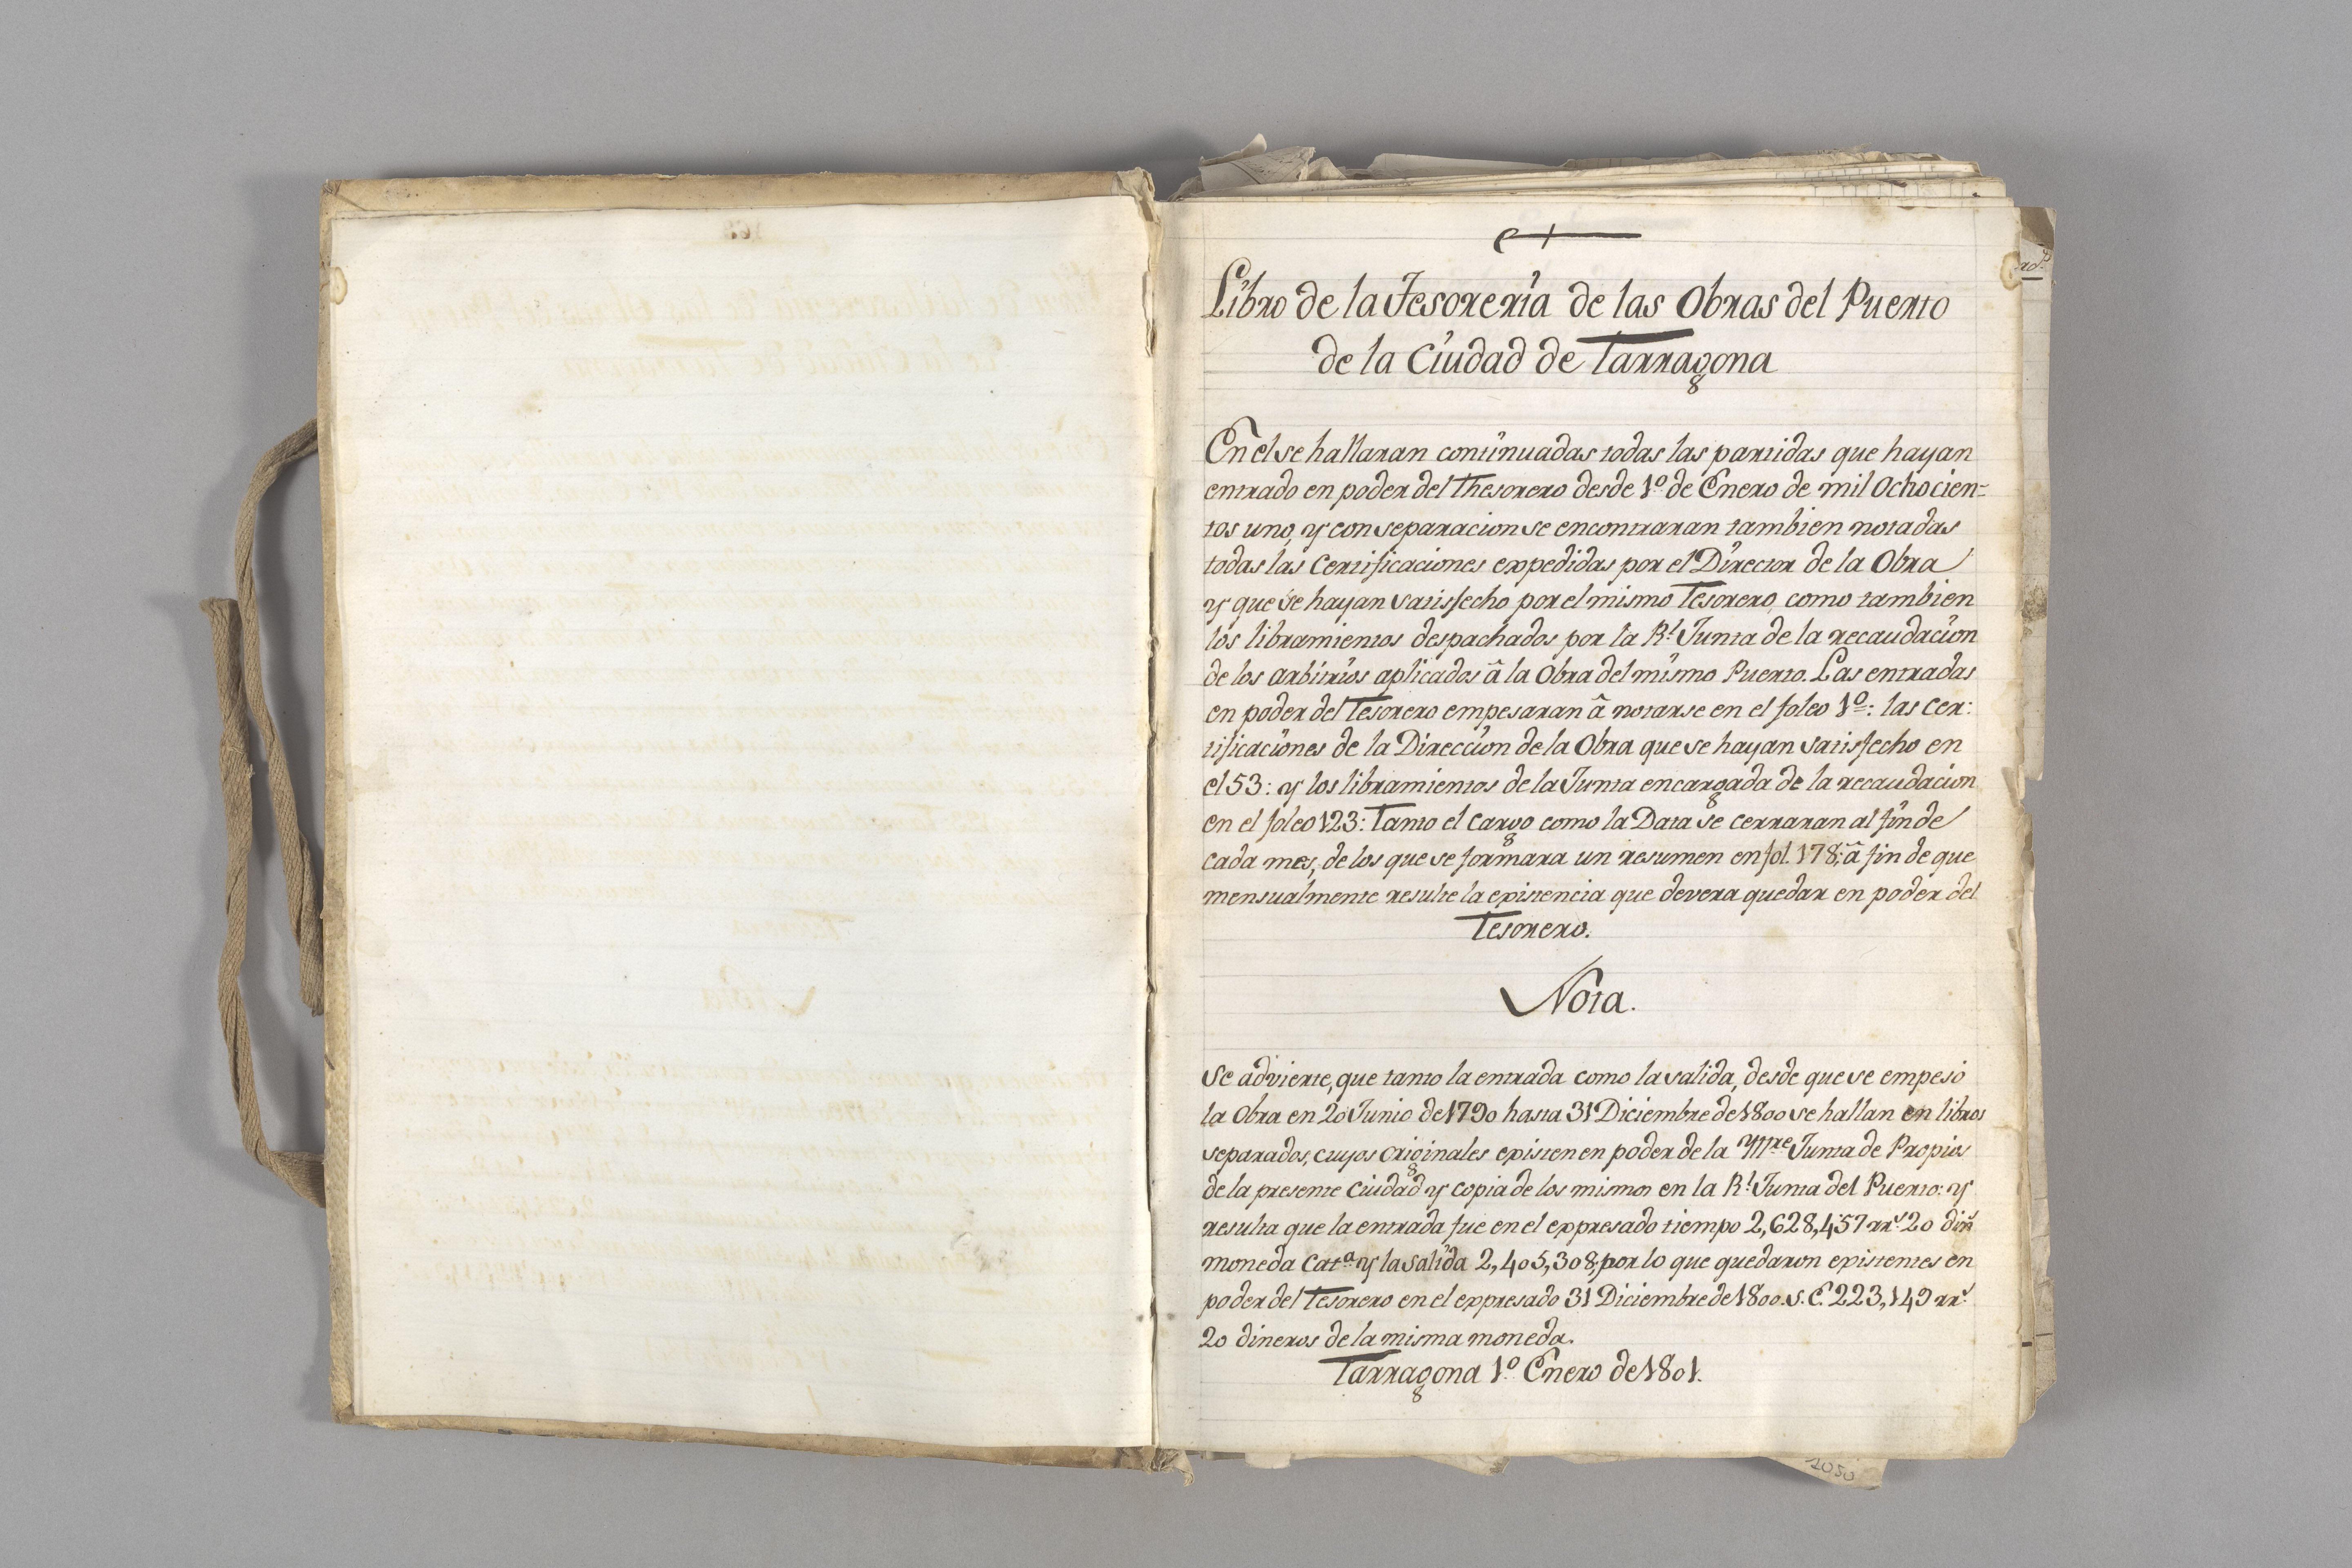 Libro de la Tesoreria de las Obras del Puerto
de la Ciudad de Tarragona
En el se hallaran continuadas todas las partidas que hayan
entrado en poder del Thesorero desde 1º de Enero de mil Ochocien=
tos uno, y con separacion se encontraran tambien notadas
todas las Certificaciones expedidas por el Director de la Obra
y que se hayan satisfecho por el mismo Tesorero, como tambien
los libramientos despachados por la Rl. Junta de la recaudacion
de los arbitrios aplicados â la Obra del mismo Puerto. Las entradas
en poder del Tesorero empesaran â notarse en el foleo 1º: las cer:
tificaciones de la Direccion de la Obra que se hayan satisfecho en
el 53: y los libramientos de la Junta encargada de la recaudacion
en el foleo 123: Tanto el cargo como la Data se cerraran al fin de
cada mes, de los que se formara un resumen en fol. 178; â fin de que
mensualmente resulte la existencia que devera quedar en poder del
Tesorero.
Nota.
Se advierte, que tanto la entrada como la salida, desde que se empesó
la Obra en 20 Junio de 1790 hasta 31 Diciembre de 1800 se hallan en libros
separados, cuyos originales existen en poder de la Yltre Junta de Propios
de la presente Ciudad y copia de los mismos en la Rl. Junta del Puerto: y
resulta que la entrada fue en el expresado tiempo 2,628,457 rrs. 20 dins
moneda Cata. y la salida 2,405,308, por lo que quedaron existentes en
poder del Tesorero en el expresado 31 Diciembre de 1800. S. E. 223,149 rrs.
20 dineros de la misma moneda.
Tarragona 1º Enero de 1801.
1050